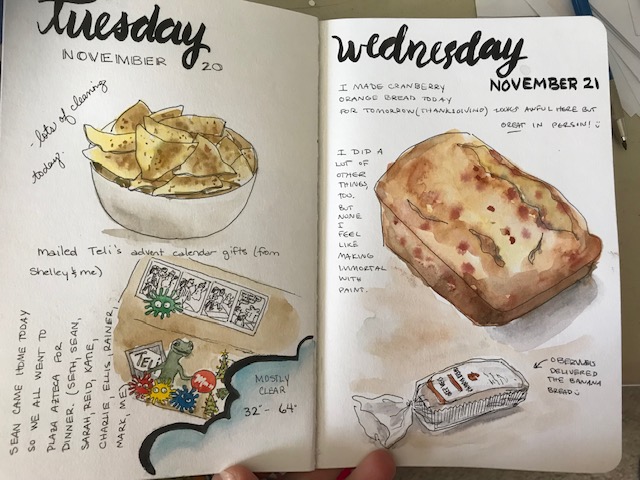 Tuesday
NOVEMBER 20
lots of cleaning
today.
Mailed Teli's advent calendar gifts (from
Shelley & me)
SEAN CAME HOME TODAY
SO WE ALL WENT TO
PLAZA AZTECA FOR
DINNER. (SETH, SEAN,
SARAH, REID, KATIE,
CHARLIE, ELLIS, RAINER,
MARK, ME)
TELI
MOSTLY
CLEAR
32° - 64°
wednesday
NOVEMBER 21
I MADE CRANBERRY
ORANGE BREAD TODAY
FOR TOMORROW (THANKSGIVING) LOOKS AWFUL HERE BUT
GREAT IN PERSON!
I DID A
LOT OF
OTHER
THINGS,
TOO.
BUT
NONE
I
FEEL
LIKE
MAKING
IMMORTAL
WITH
PAINT.
DELIVERED
THE BANANA
BREAD